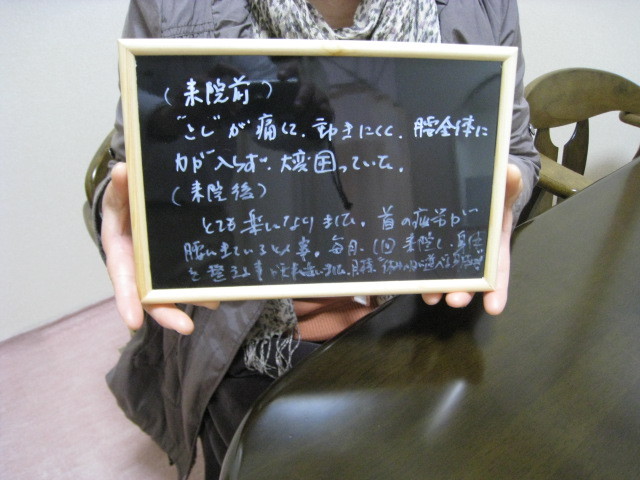 (来院前)
"こし"が痛くて、動きにくく、腰全体に
力が入らず、大変困っていた。
(来院後)
とても楽になりました。首の疲労が
腰に来ているとの事。毎月、1回来院し、身体
を整える事